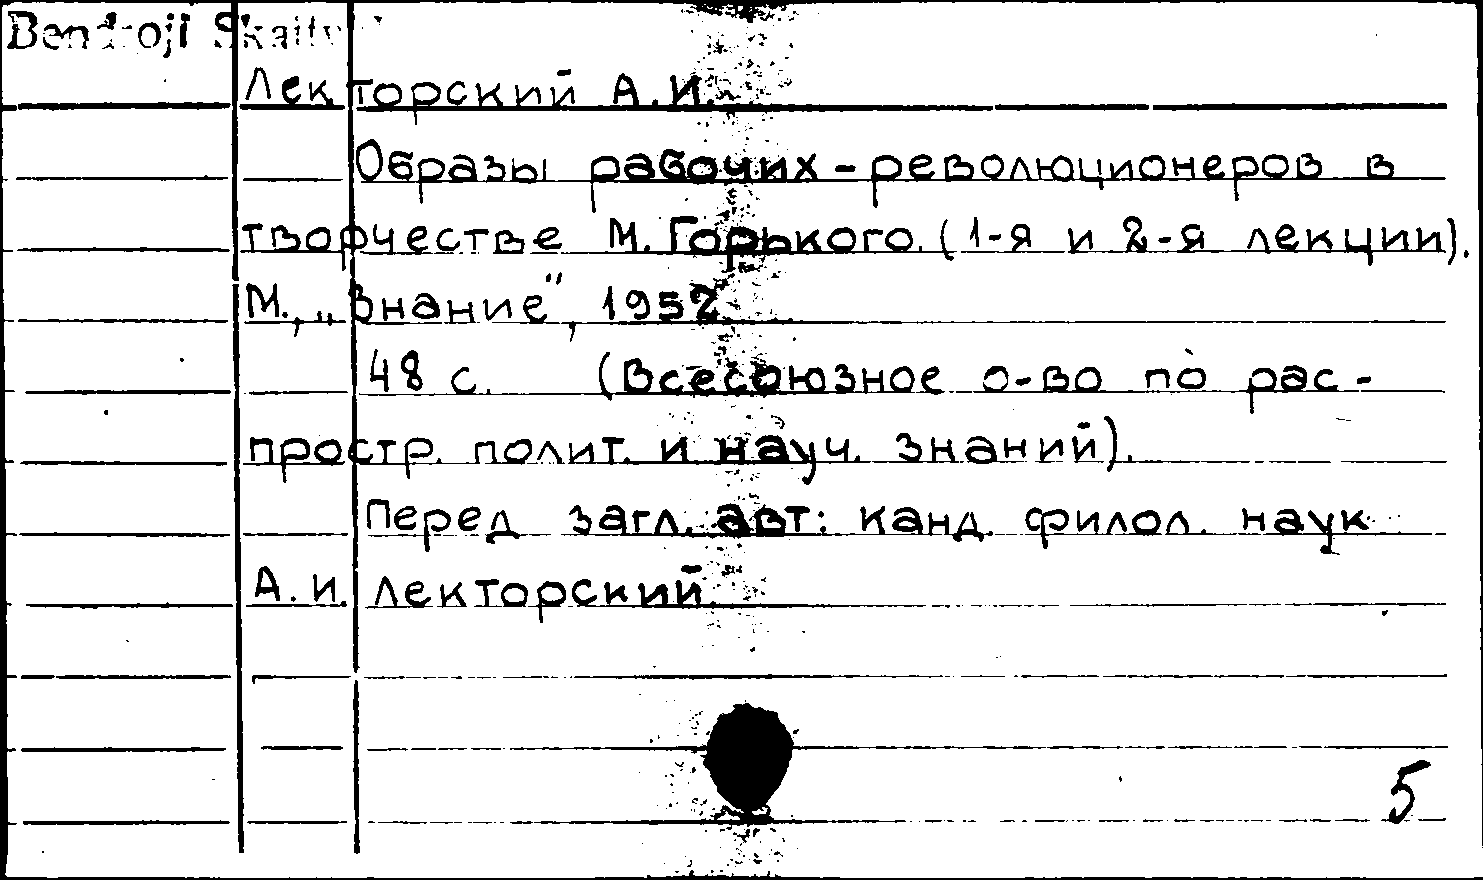 Bendroji
Лекторский А.И.
Образы рабочих-революционеров в
творчестве М. Горького. (1-я и 2-я лекции).
М., „Знание", 1952
48 с. (Всесоюзное о-во по рас-
простр. полит. и науч. знаний).
Перед загл. авт: канд. филол. наук
А. И. Лекторский
5